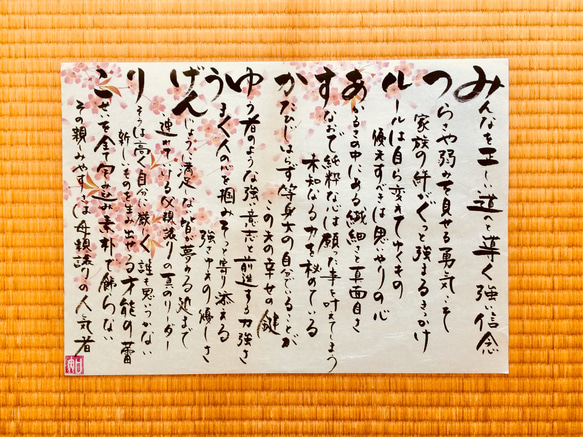 みんなを正しい道へと導く強い信念
つらさや弱みを見せる勇気こそ
家族の絆がぐっと強まるきっかけ
ルールは自ら変えてゆくもの
優先すべきは思いやりの心
あかるさの中にある繊細さと真面目さ
すなおで純粋な心は願った事を叶えてしまう
未知なる力を秘めている
かたひじはらず等身大の自分でいることが
この夫の幸せの鍵
ゆう者のような強い意志で前進する力強さ
うまく人の心を掴みそっと寄り添える
強さゆえの優しさ
げんじょうに満足しない皆が夢みる処まで
連れてける父親譲りの真のリーダー
りそうは高く自分に厳しく誰も思いつかない
新しいものを生み出せる才能の蕾
こせいを全て包み込み素朴で飾らない
その親しみやすさは母親譲りの人気者